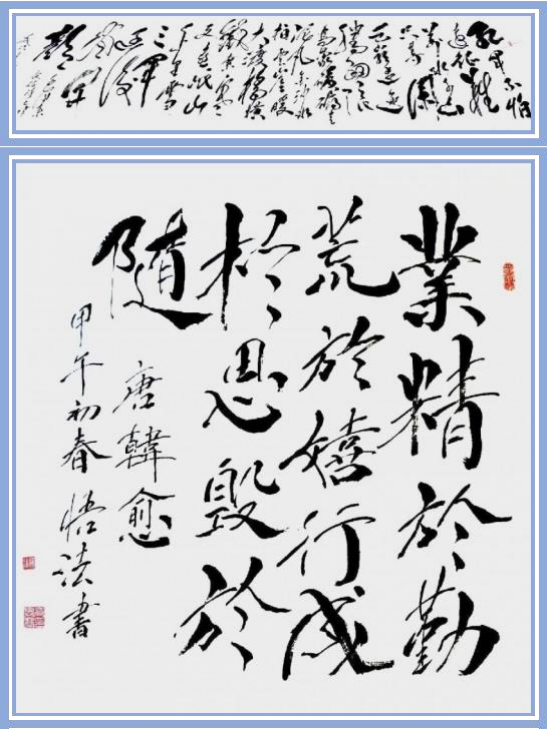 紅軍不怕
遠征難
萬水千山
只等閑
五嶺逶迤
騰細浪
烏蒙磅礴走
泥丸金沙水
拍雲崖暖
大渡橋橫
千里雪
三軍
過後
業精於勤
荒於嬉行成
於思毀於
隨
唐韓愈
甲午初春悟法書